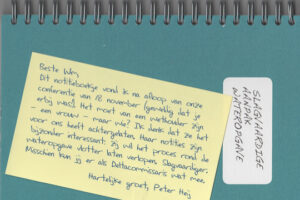 Beste Wim,
Dit notitieboekje vond ik na afloop van onze
conferentie van 18 november (geweldig dat je
erbij was!). Het moet van een wethouder zijn
- een vrouw - maar wie? Ik denk dat ze het
voor ons heeft achtergelaten. Haar notities zijn
bijzonder interessant: zij wil het proces rond de
wateropgave vlotter laten verlopen, Slagvaardiger.
Misschien kun jij er als Deltacommissaris wat mee.
Hartelijke groet, Peter Heij
SLAGVAARDIGE
AANPAK
WATEROPGAVE